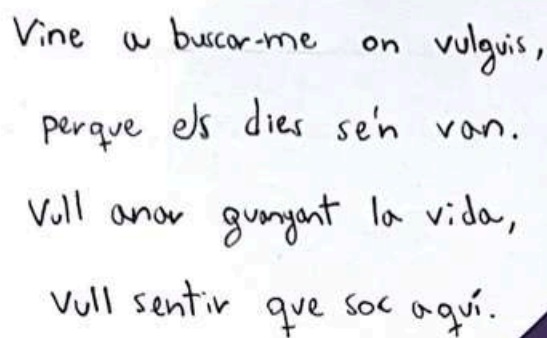 Vine a buscar-me on vulguis,
perque els dies se'n van.
Vull anar guanyant la vida,
Vull sentir que soc aquí.